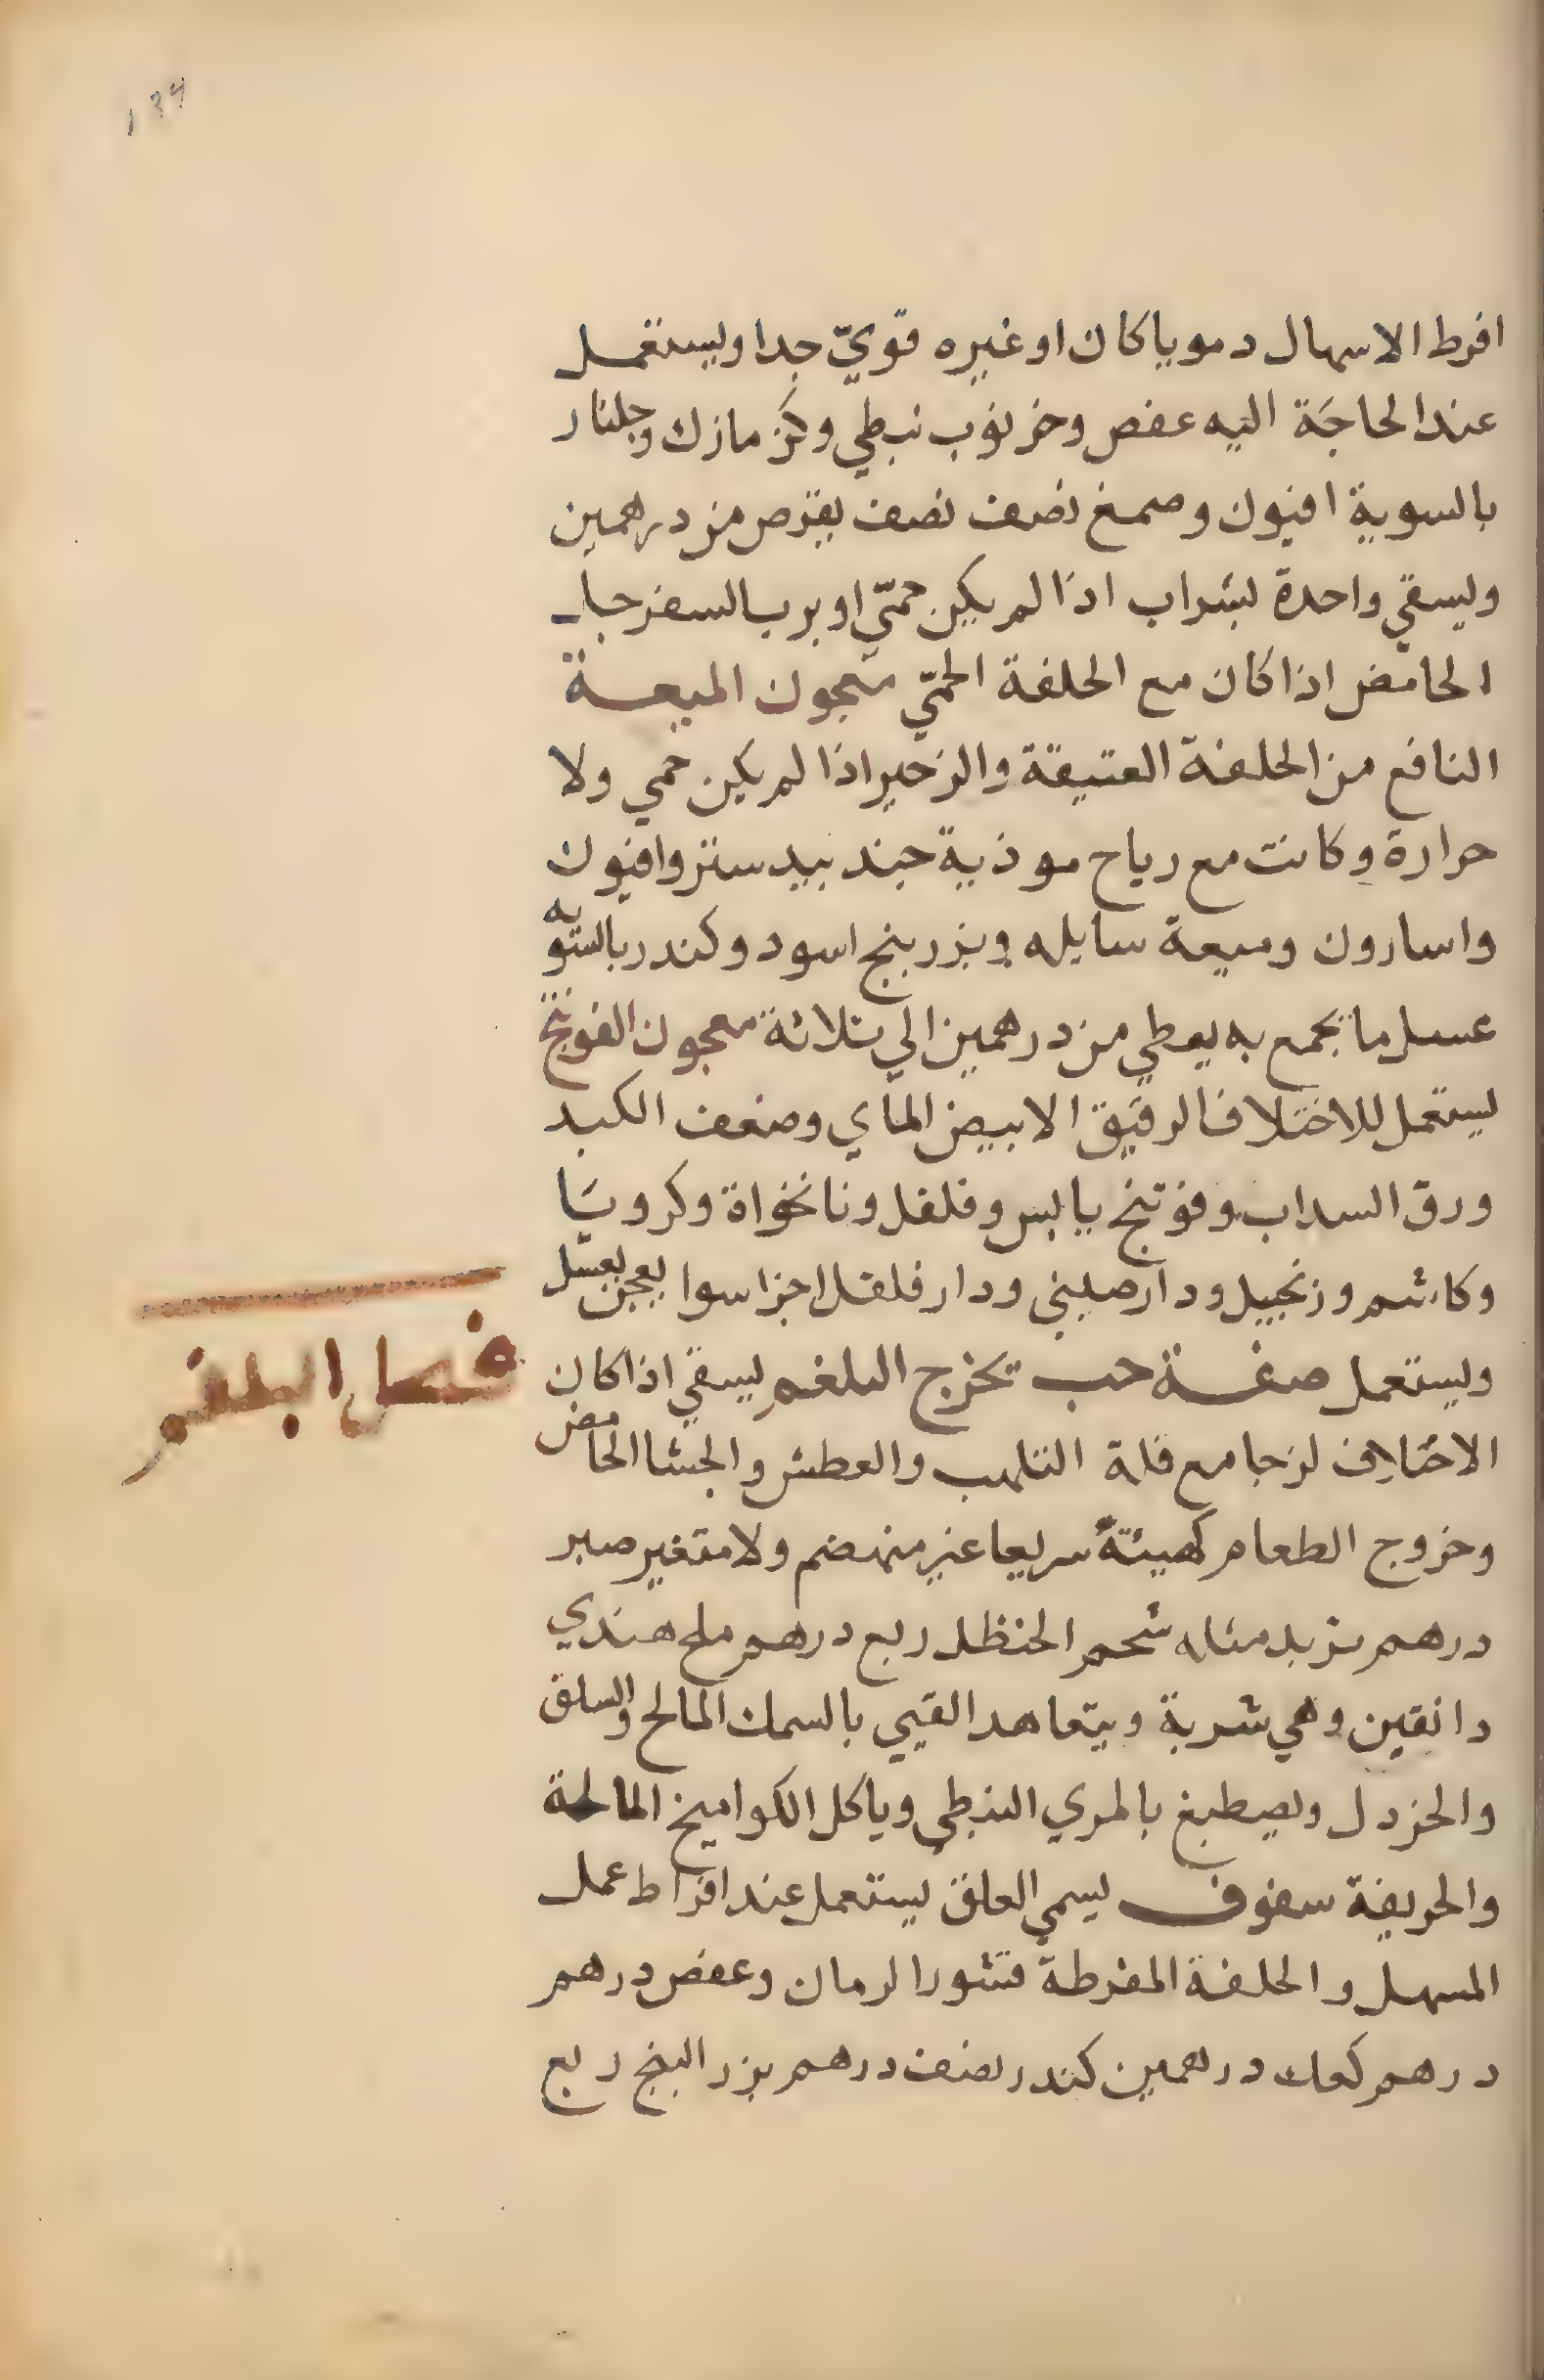 139
افرط الاسهال دمويا كان او غيره قويّ جدا ويستعمل
عند الحاجَة اليه عفص وخرنوب نبطي وكزمازك وجلنار
بالسوية افيون وصمغ نصف نصف يقرص من درهمين
ويسقي واحدة بشراب اذا لم يكن حمّي او برب السفرجل
الحامض اذا كان مع الخلفة الحمّي معجون الميعة
النافع من الخلفة العتيقة والزحير اذا لم يكن حمي ولا
حرارة وكانت مع رياح موذية جندبيدستر وافيون
واسارون وميعة سايله وبزر بنج اسود وكندر بالسّويه
عسل ما يجمع به يعطي من درهمين الي ثلاثة معجون الفوتنج
يستعمل للاختلاف الرقيق الابيض الماي وضعف الكبد
ورق السداب وفوتنج يابس وفلفل ونانخواة وكرويَا
وكاشم وزنجبيل ودارصيني ودارفلفل اجزا سوا يعجن بعسل
ويستعمل صفة حب تخرج البلغم يسقي اذا كان
فصل البلغم
الاختلاف لزجا مع قلة التلهب والعطش والجشا الحامض
وخروج الطعام كهيئتة سريعا غير منهضم ولا متغير صبر
درهم تربد مثله شحم الحنظل ربع درهم ملح هندي
دانقين وهي شربة ويتعاهد القيي بالسمك المالح والسلق
والخردل ويصطبغ بالمري النبطي وياكل الكواميخ المالحة
والحريفة سفوف يسمي العلق يستعمل عند افراط عمل
المسهل والخلفة المفرطة قشور الرمان وعفص درهم
درهم كعك درهمين كندر نصف درهم بزر البنج ربع